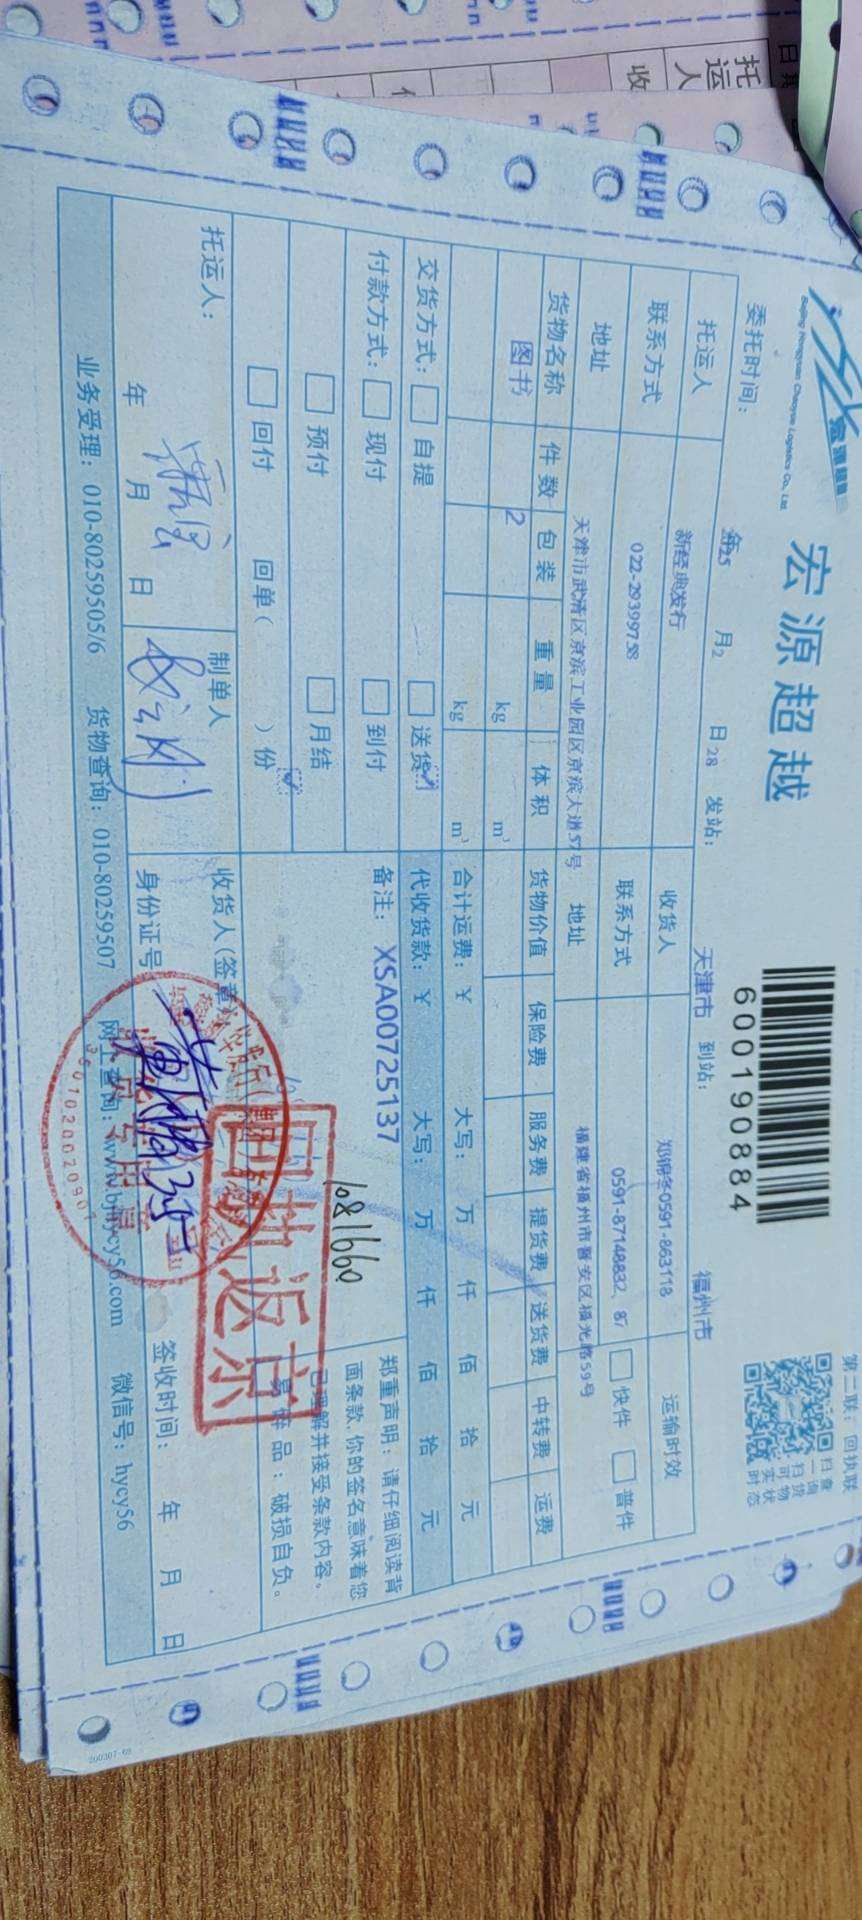 宏源超越
Beijing Hongyuan Chaoyue Logistics Co., Ltd.
600190884
第二联：回执联
扫一扫可实时
查询货物状态
委托时间： 年25 月2 日28 发站： 天津市 到站： 福州市
托运人 新经典发行 收货人 郑锦冬0591-863118 运输时效
联系方式 022-29399758 联系方式 0591-87148832、87 快件 普件
地址 天津市武清区京滨工业园区京滨大道57号 地址 福建省福州市晋安区福光路59号
货物名称 件数 包装 重量 体积 货物价值 保险费 服务费 提货费 送货费 中转费 运费
图书 2 kg m³
kg m³ 合计运费：￥ 大写： 万 仟 佰 拾 元
交货方式： 自提 送货 代收货款：￥ 大写： 万 仟 佰 拾 元
付款方式： 现付 到付 备注： XSA00725137
预付 月结
回付 回单( )份
1081660
郑重声明：请仔细阅读背
面条款,你的签名意味着您
已理解并接受条款内容。
易碎品：破损自负。
回执返京
托运人： 制单人 收货人(签章)
年 月 日 身份证号 签收时间： 年 月 日
业务受理：010-80259505/6 货物查询：010-80259507 网上查询：www.bjhycy56.com 微信号：hycy56